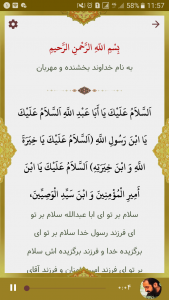 58% 11:57
بِسْمِ اللَّهِ الرَّحْمنِ الرَّحیمِ
به نام خداوند بخشنده و مهربان
اَلسَّلامُ عَلَیْکَ یَا أَبا عَبْدِ اللَّهِ اَلسَّلامُ عَلَیْکَ
یَا ابْنَ رَسُولِ اللَّهِ (اَلسَّلامُ عَلَیْکَ یَا خِیَرَةَ
اللَّهِ وَ ابْنَ خِیَرَتِهِ) اَلسَّلامُ عَلَیْکَ یَا ابْنَ
أَمِیرِ الْمُؤْمِنِینَ وَ ابْنَ سَیِّدِ الْوَصِیِّینَ،
سلام بر تو ای ابا عبدالله سلام بر تو
ای فرزند رسول خدا سلام بر تو ای
برگزیده خدا و فرزند برگزیده اش سلام
بر تو ای فرزند امیر مومنان و فرزند آقای
۰:۰۴